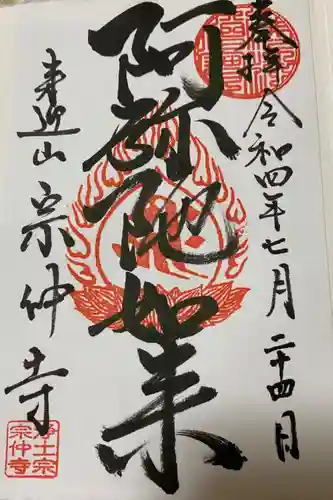 奉拝
令和四年七月二十四日
阿弥陀如来
来迎山宗仲寺
浄土宗
宗仲寺